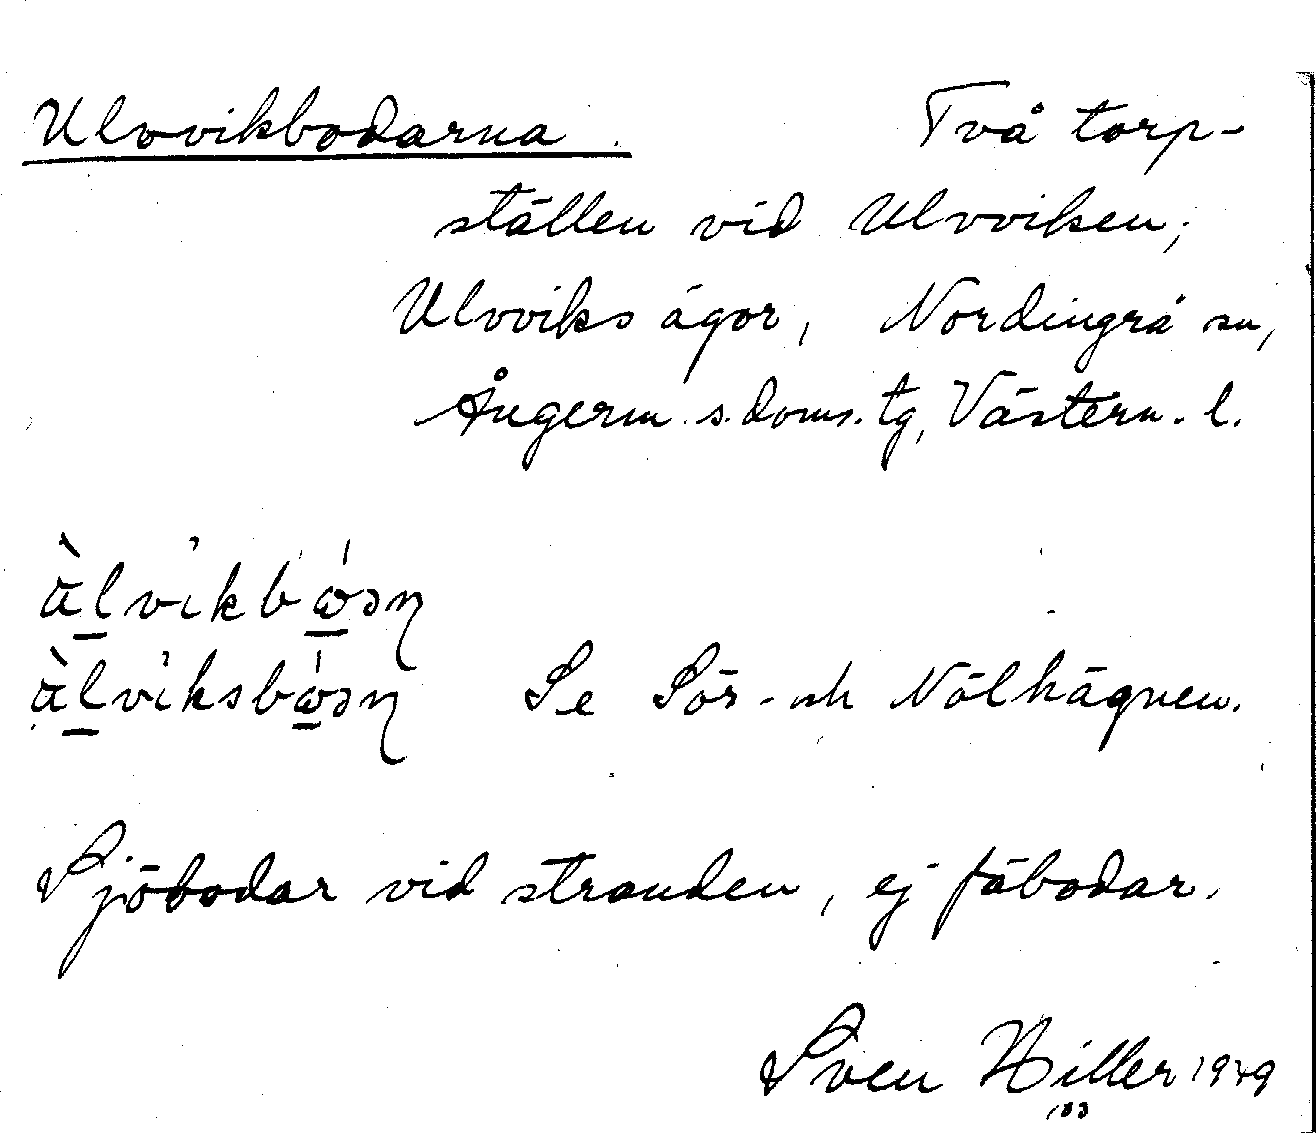 Ulvvikbodarna. Två torp-
ställen vid Ulvviken;
Ulvviks ägor, Nordingrå sn,
Ångerm. s. doms. tg, Västern. l.
ὰlvikbǿəη
ὰlviksbǿəη Se Sör- och Nölhägnen.
Sjöbodar vid stranden, ej fäbodar.
Sven Hiller 1949